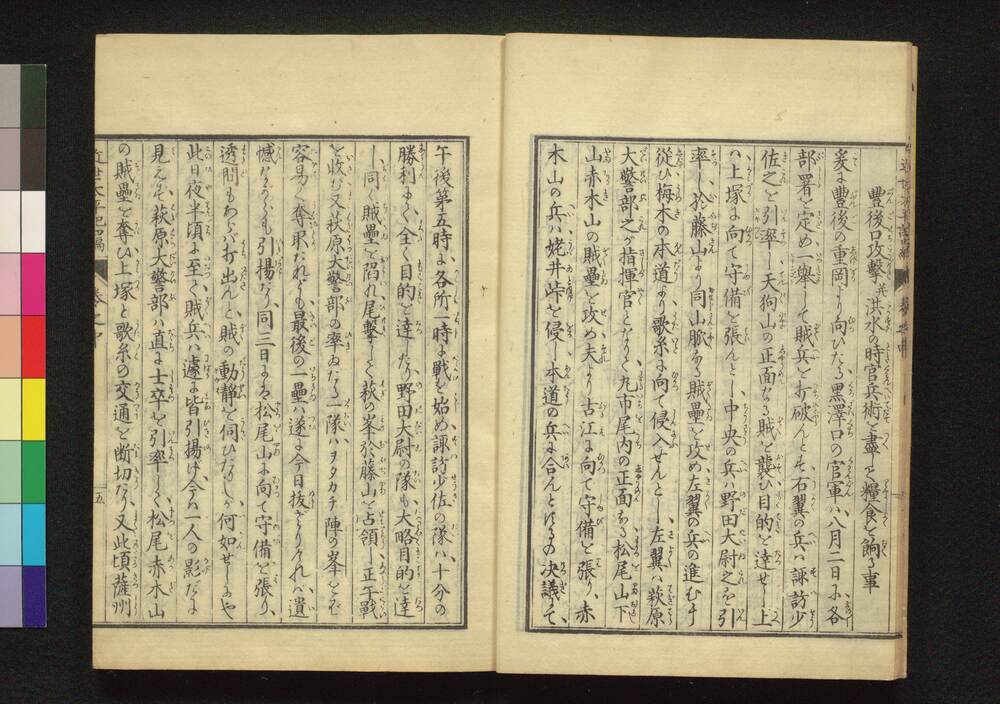 豊後口攻撃并洪水の時官兵術を盡して糧食を餉る事
爰に豊後の重岡より向ひたる黒澤口の官軍ハ八月二日に各
部署を定め一舉して賊兵を打破んとそ右翼の兵ハ諏訪少
佐之を引率し天狗山の正面なる賊を襲ひ目的を達せし上
ハ上塚に向て守備を張んとし中央の兵ハ野田大尉之を引
率し於藤山より同山脈なる賊壘を攻め左翼の兵の進むに
從ひ梅木の本道より歌糸に向て侵入せんとし左翼ハ萩原
大警部之が指揮官となりて九市尾内の正面なる松尾山下
山赤木山の賊壘を攻め夫より古江に向て守備を張り、赤
木山の兵ハ姥井峠を侵し本道の兵に合んとするの决議にて、
午後第五時に各所一時に戰を始め諏訪少佐の隊ハ、十分の
勝利にて全く目的を達したり野田大尉の隊も大略目的を達
し同く賊壘を陷れ尾撃して萩の峯於藤山を占領し正午戰
を收む又萩原大警部の率ゐたる一隊ハヲタカチ陣の峯をバ
容易く奪取たれども最後の一壘ハ遂に今日抜ざりけれハ遺
憾ながらも引揚たり同三日にハ松尾山に向て守備を張り、
透間もあらバ打出んと、賊の動静を伺ひたりしが何如せしにや
此日夜半頃に至て賊兵ハ遽に皆引揚げ今ハ一人の影だに
見えず萩原大警部ハ直に士卒を引率して松尾赤木山
の賊壘を奪ひ上塚と歌糸の交通を断切たり、又此頃薩州
五